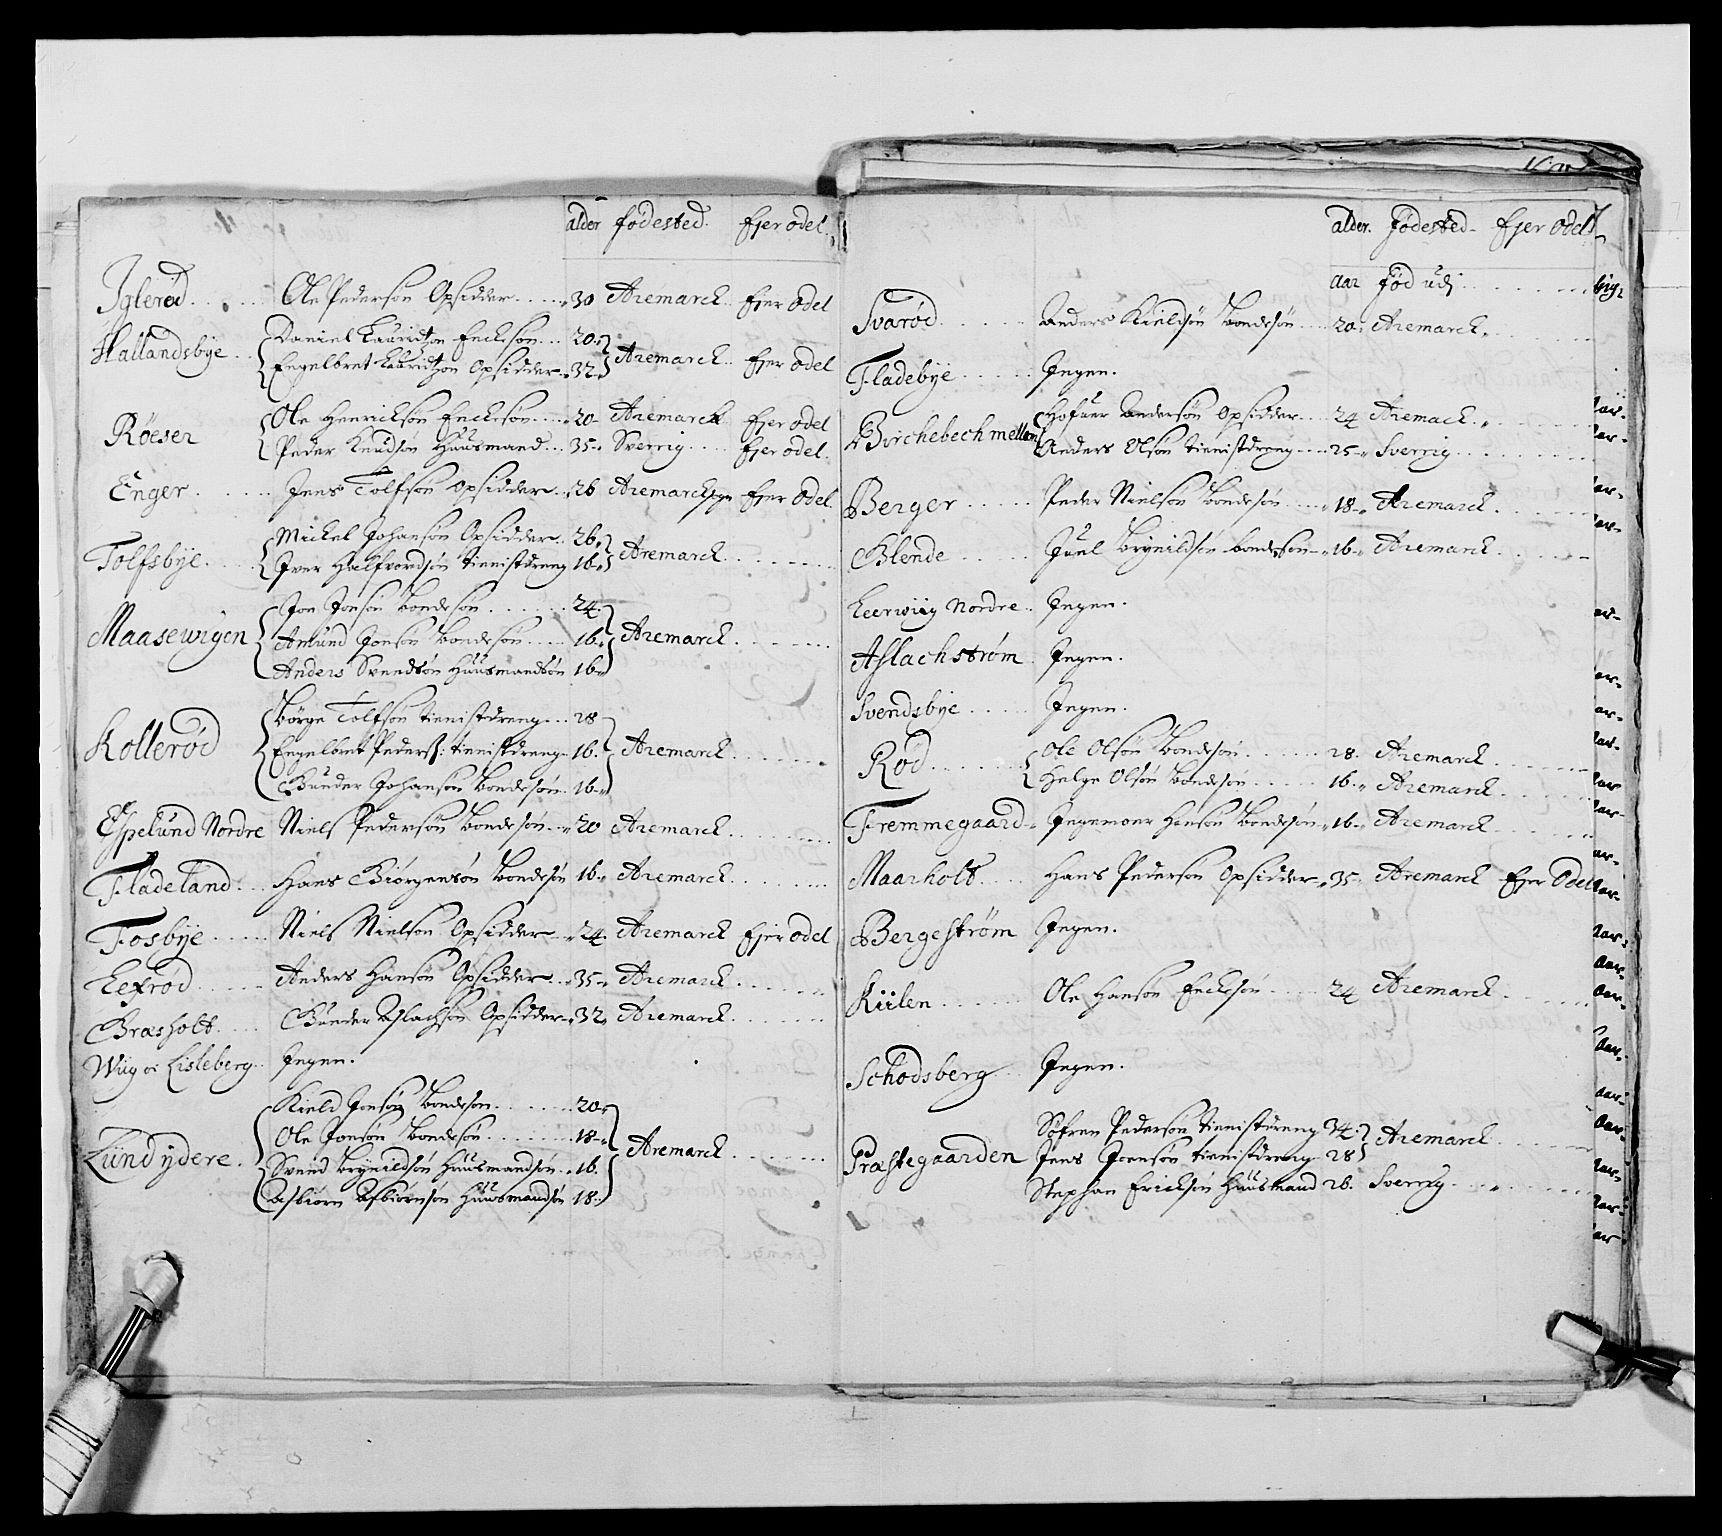 alder fødested. Ejer odel.
Iglerød Ole Pedersøn Opsidder 30 Aremarck Ejer Odel
Hallandsbye Daniel Lauridtzon Enckeson 20
Engelbret Lauridtzon Opsidder 32 Aremarck Ejer Odel
Røeser Ole Henricksøn Enckesøn 20 Aremarck Ejer odel
Peder Knudsøn Huusmand 35 Sverrig Ejer odel
Enger Jens Tolfsøn Opsidder 26 Aremarck Ejer Odel
Tolfsbye Mickel Johansøn Opsidder 26
Iver Halfvordsøn tienistdreng 16 Aremarck
Maasewigen Jon Jonsøn Bondesøn 24
Amund Jonsøn Bondesøn 16 Aremarck
Anders Svendsøn Huusmandsøn 16
Kollerød Børge Tolfsøn tienistdreng 28
Engelbret Peders: tienistdreng 16 Aremarck
Gunder Johansøn Bondesøn 16
Espelund Nordre Niels Pedersøn Bondesøn 20 Aremarck
Fladeland Hans Biørgensøn Bondesøn 16 Aremarck
Fosbye Niels Nielsøn Opsidder 24 Aremarck Ejer odel
Lefrød Anders Hansøn Opsidder 35 Aremarck
Bræsholt Gunder Aslachsøn Opsidder 32 Aremarck
Wiig oc Lisleberg Ingen.
Lund ydere Kield Jonsøn Bondesøn 20
Ole Jonsøn Bondesøn 18
Svend Brynildsøn Huusmandsøn 16 Aremarck
Asbiørn Asbiørnsøn Huusmandsøn 18
alder. Fødested Ejer Odel
aar Fød udi
Svarød Anders Kieldsøn Bondesøn 20 Aremarck
Fladebye Ingen.
Birchebech mellem Hofuer Andersøn Opsidder 24 Aremack
Anders Olsøn tienistdreng 25 Sverrig
Berger Peder Nielsøn Bondesøn 18 Aremarck
Blende Juel Brynildsøn bondesøn 16 Aremarck
Leerwiig Nordre Ingen.
Aslachstrøm Ingen.
Svendsbye Ingen.
Rød Ole Olsøn Bondesøn 28 Aremarck
Helge Olsøn Bondesøn 16 Aremarck
Fremmegaard Ingemoer Hansøn Bondesøn 16 Aremarck
Maarholt Hans Pedersøn Opsidder 35 Aremarck Ejer Odel
Bergestrøm Ingen.
Kiilen Ole Hansøn Enckesøn 24 Aremarck
Schodsberg Ingen.
Præstegaarden Søfren Pedersøn tienistdreng 34 Aremarck
Jens Joensøn tienistdreng 28
Stephan Ericksøn Huusmand 26 Sverrig